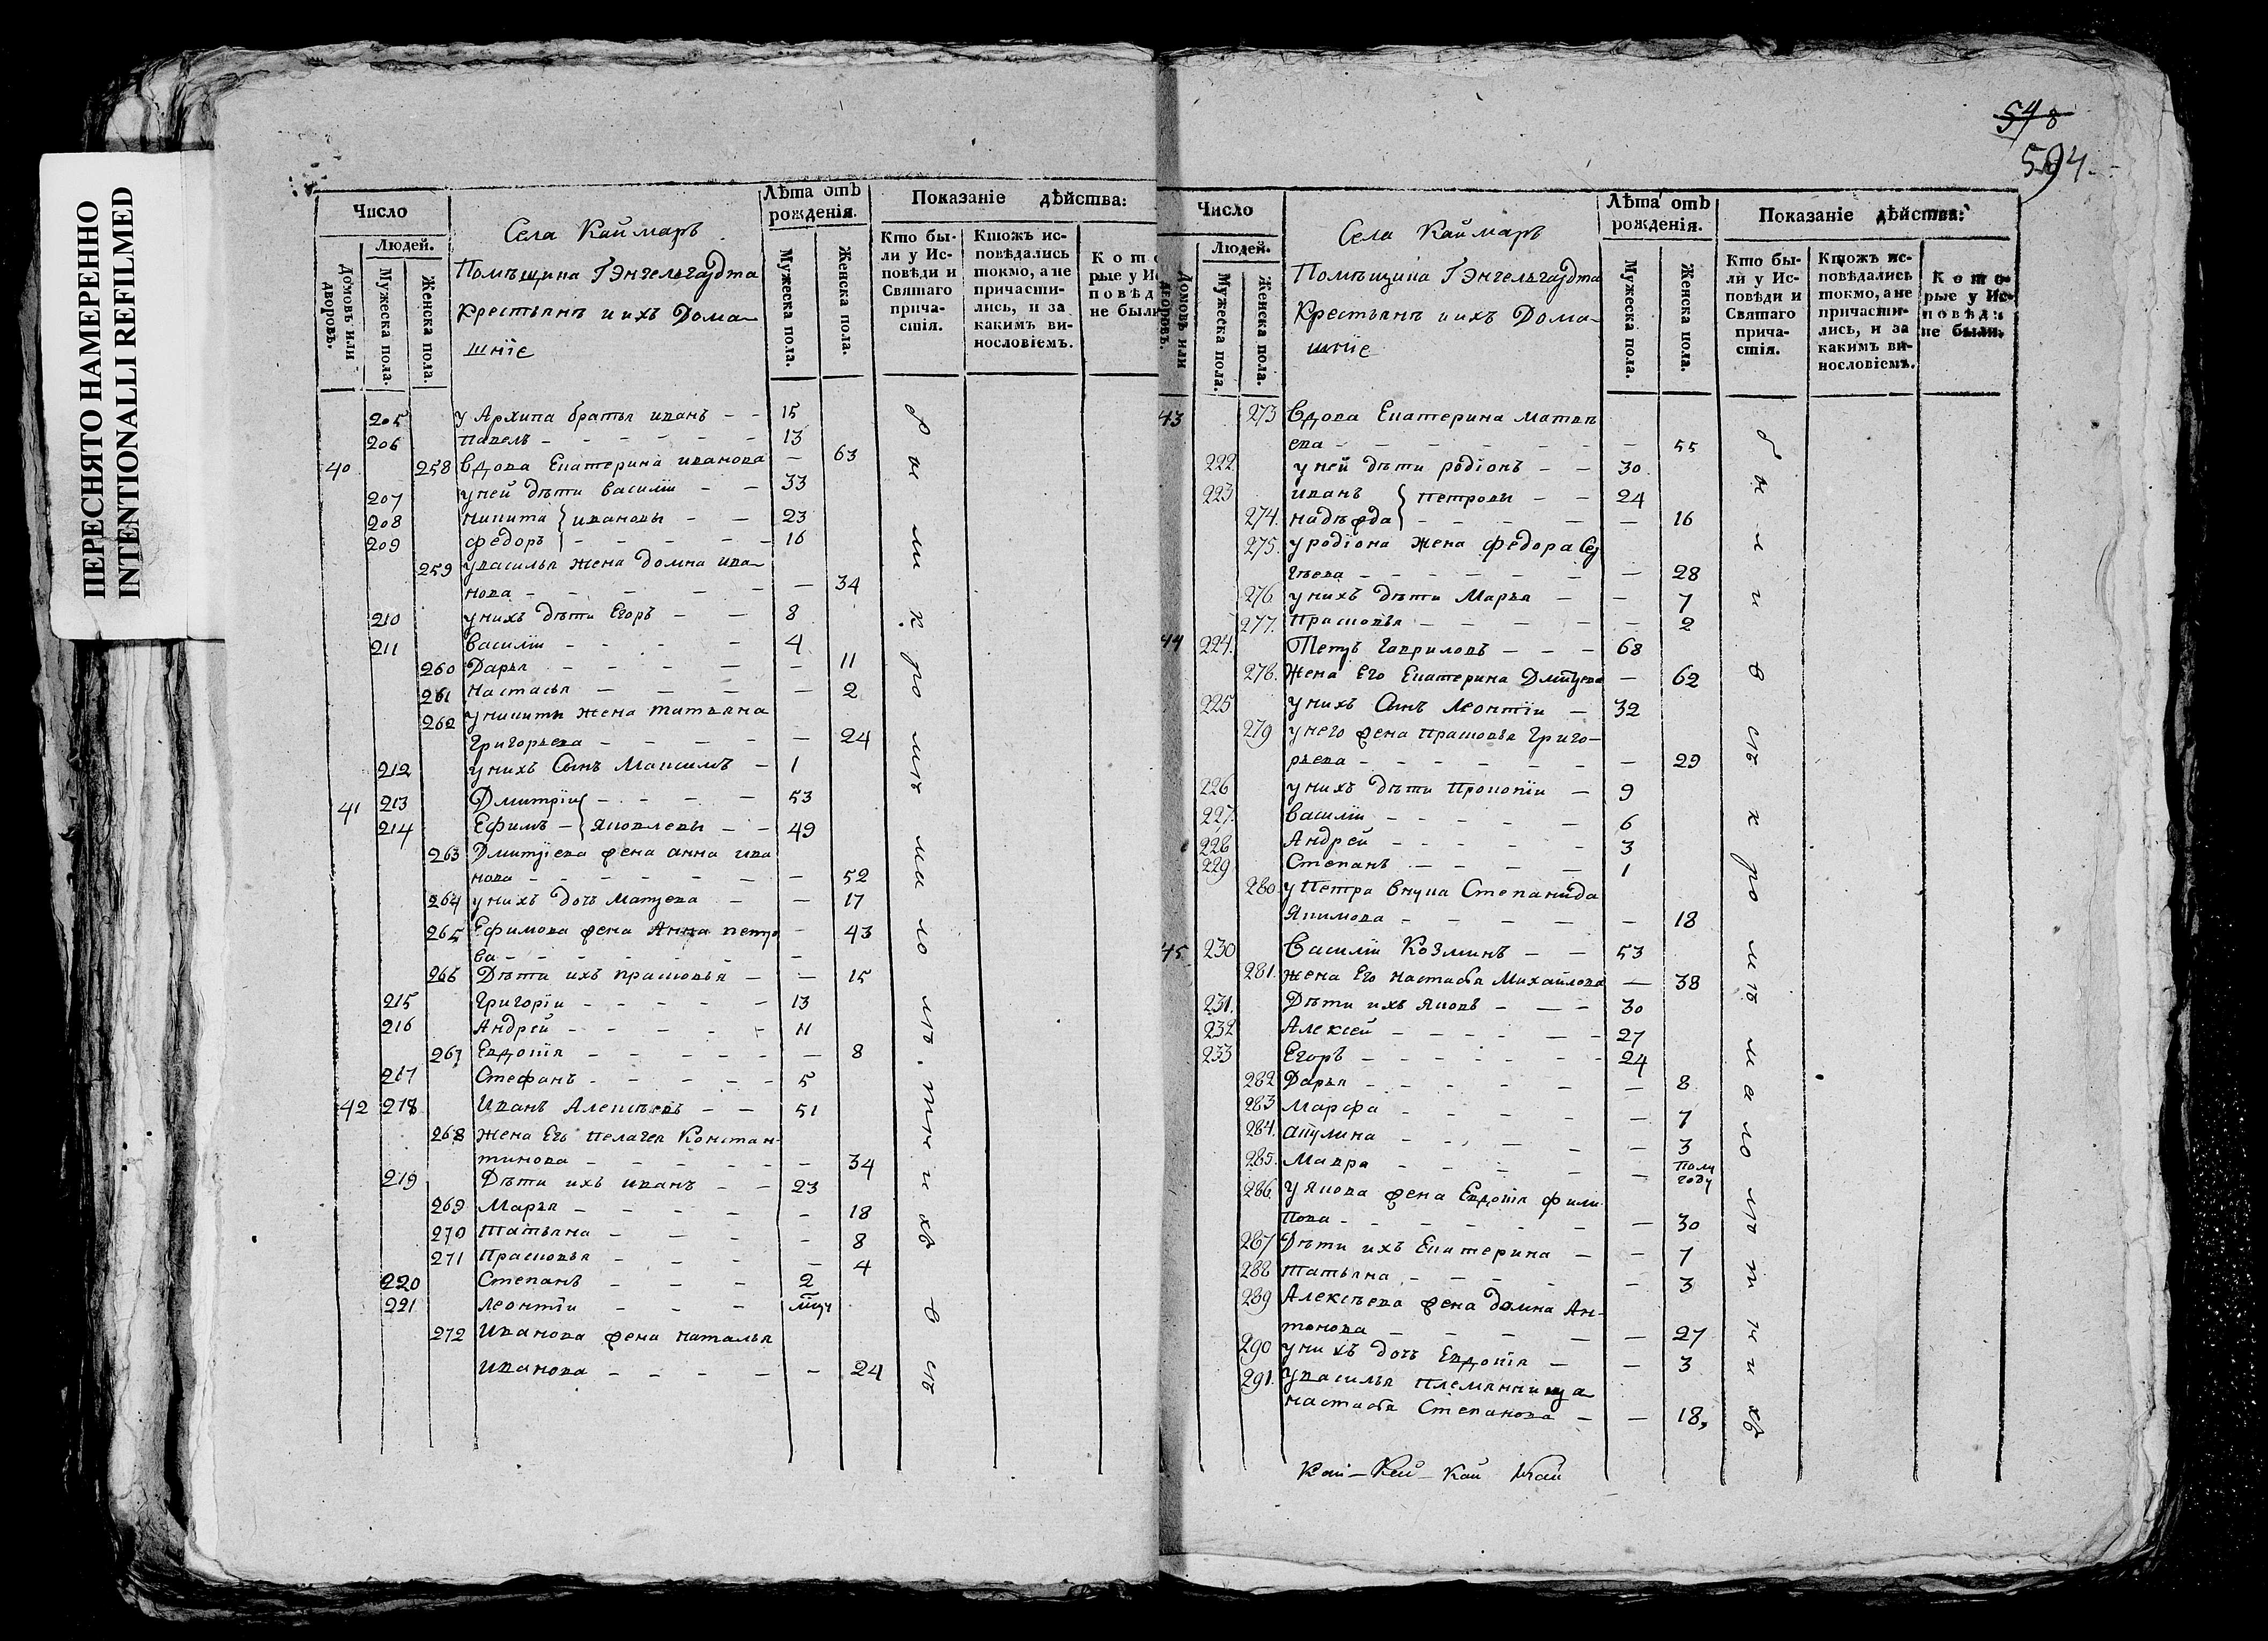 ПЕРЕСНЯТО НАМЕРЕННО
INTENTIONALLI REFILMED
Число
Людей.
Домовъ или дворовъ.
Мужеска пола.
Женска пола.
Села Каймаръ
Помѣщика Гэнгельгардта
Крестьянъ и ихъ Дома-
шніе
Лѣта отъ рожденія.
Мужеска пола.
Женска пола.
Показаніе дѣйства:
Кто бы-
ли у Ис-
повѣди и
Святаго
прича-
стія.
Ктожъ ис-
повѣдались
токмо, а не
причасти-
лись, и за
какимъ ви-
нословіемъ.
Кото
рые у Ис
повѣд
не были
205 у Архипа братья иванъ - - 15
206 павелъ - - - - - - 13
40 258 вдова Екатерина иванова - 63
207 у ней дѣти василіи - - 33
208 никита } ивановы - - 23
209 федоръ } - - - - - 16
259 у василья жена домна ива-
нова - - - - - - 34
210 у нихъ дѣти Егоръ - - 8
211 василіи - - - - 4
260 Дарья - - - - - 11
261 настасья - - - - - 2
262 у никиты жена татьяна
Григорьева - - - - - 24
212 у нихъ Сынъ Максимъ - 1
41 213 Дмитріи { - - - - 53
214 Ефимъ - { Яковлевы - - 49
263 Дмитріева жена анна ива
нова - - - - - - - 52
264 у нихъ дочь Матрева - - 17
265 Ефимова жена Анна петро - 43
ва - - - - - - -
266 Дѣти ихъ прасковья - - 15
215 Григоріи - - - - - 13
216 Андрей - - - - - 11
267 Евдотія - - - - - - 8
217 Стефанъ - - - - - 5
42 218 Иванъ Алексѣевъ - - 51
268 жена Его пелагея Констан-
тинова - - - - - - 34
219 Дѣти ихъ иванъ - - 23
269 Марья - - - - - - 18
270 татьяна - - - - 8
271 прасковья - - - - - 4
220 Степанъ - - - 2
221 леонтіи - - -
272 Иванова жена наталья
Иванова - - - - - - 24
594
Число
Людей.
Домовъ или дворовъ.
Мужеска пола.
Женска пола.
Села Каймаръ
Помѣщика Гэнгельгардта
Крестьянъ и ихъ Дома-
шніе
Лѣта отъ рожденія.
Мужеска пола.
Женска пола.
Показаніе дѣйства:
Кто бы-
ли у Ис-
повѣди и
Святаго
прича-
стія.
Ктожъ ис-
повѣдались
токмо, а не
причасти-
лись, и за
какимъ ви-
нословіемъ.
Кото-
рые у Ис-
повѣди
не были.
43 273 Вдова Екатерина Матвѣ
ева - - - - - - - - 55
222 у ней дѣти родіонъ - - 30
223 иванъ { петровы - - 24
274 надѣжда } - - - - - 16
275 у родіона жена федора Сер
гѣева - - - - - - - 28
276 у нихъ дѣти Марья - - 7
277 прасковья - - - - - 2
44 224 Петръ Гавриловъ - - - 68
278 жена Его Екатерина Дмитрева - 62
225 у нихъ Сынъ Леонтіи - 32
279 у него жена прасковья Григо-
рьева - - - - - - - 29
226 у нихъ дѣти прокопіи - 9
227 василіи - - - - - 6
228 Андрей - - - - - 3
229 Степанъ - - - - 1
280 у петра внука Степанида
Якимова - - - - - - 18
45 230 Василіи Козминъ - - 53
281 жена Его настасья Михайлова - 38
231 Дѣти ихъ Яковъ - - - 30
232 Алексей - - - - - - 27
233 Егоръ - - - - - - 24
282 Дарья - - - - - - 8
283 Марфа - - - - - 7
284 акулина - - - - - 3
285 Мавра - - - - - полу году
286 у якова жена Евдотія фили
пова - - - - - - - 30
287 Дѣти ихъ Екатерина - - 7
288 татьяна - - - - - 3
289 Алексѣева жена домна Ан-
тонова - - - - - 27
290 у нихъ дочь Евдотія - - 3
291 у василья племянница
настасья Степанова - - 18,
Кай- Кей- Кай Кай